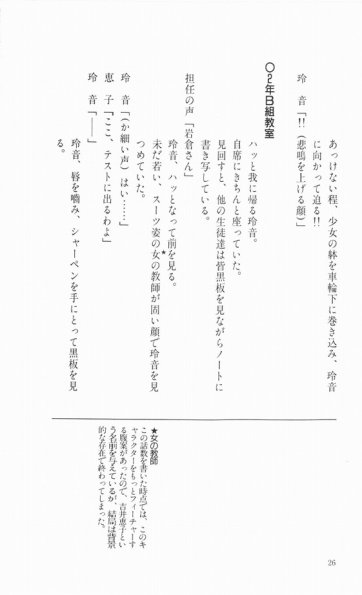 あっけない程、少女の躰を車輪下に巻き込み、玲音
に向かって迫る!!
玲　音「!!（悲鳴を上げる顔）」
〇2年B組教室
ハッと我に帰る玲音。
自席にきちんと座っていた。
見回すと、他の生徒達は皆黒板を見ながらノートに
書き写している。
担任の声「岩倉さん」
玲音、ハッとなって前を見る。
未だ若い、スーツ姿の女の教師★が固い顔で玲音を見
つめていた。
玲　音「（か細い声）はい……」
恵　子「ここ、テストに出るわよ」
玲　音「――」
玲音、唇を噛み、シャーペンを手にとって黒板を見
る。
★女の教師
この話数を書いた時点では、このキ
ャラクターをもっとフィーチャーす
る腹案があったので、吉井恵子とい
う名前を与えているが、結局は背景
的な存在で終わってしまった。
26